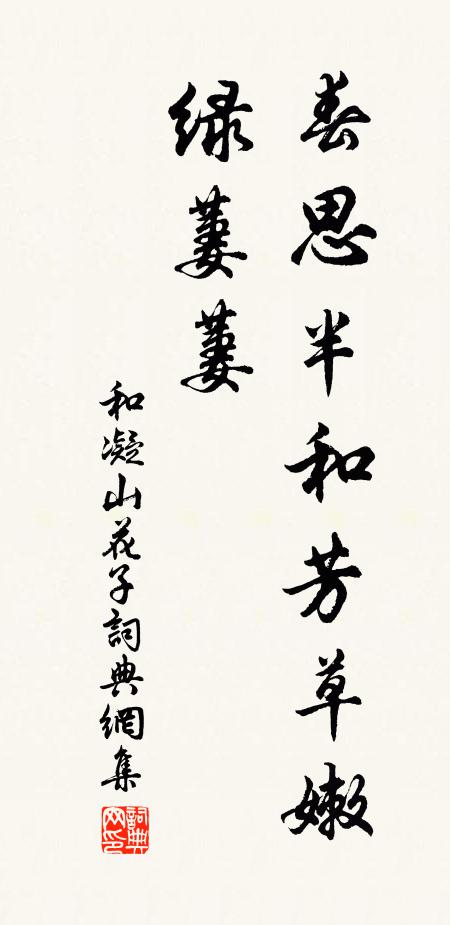 春思半和芳草嫩
緑萋萋
和凝山花子詞典網集
詞典
网印